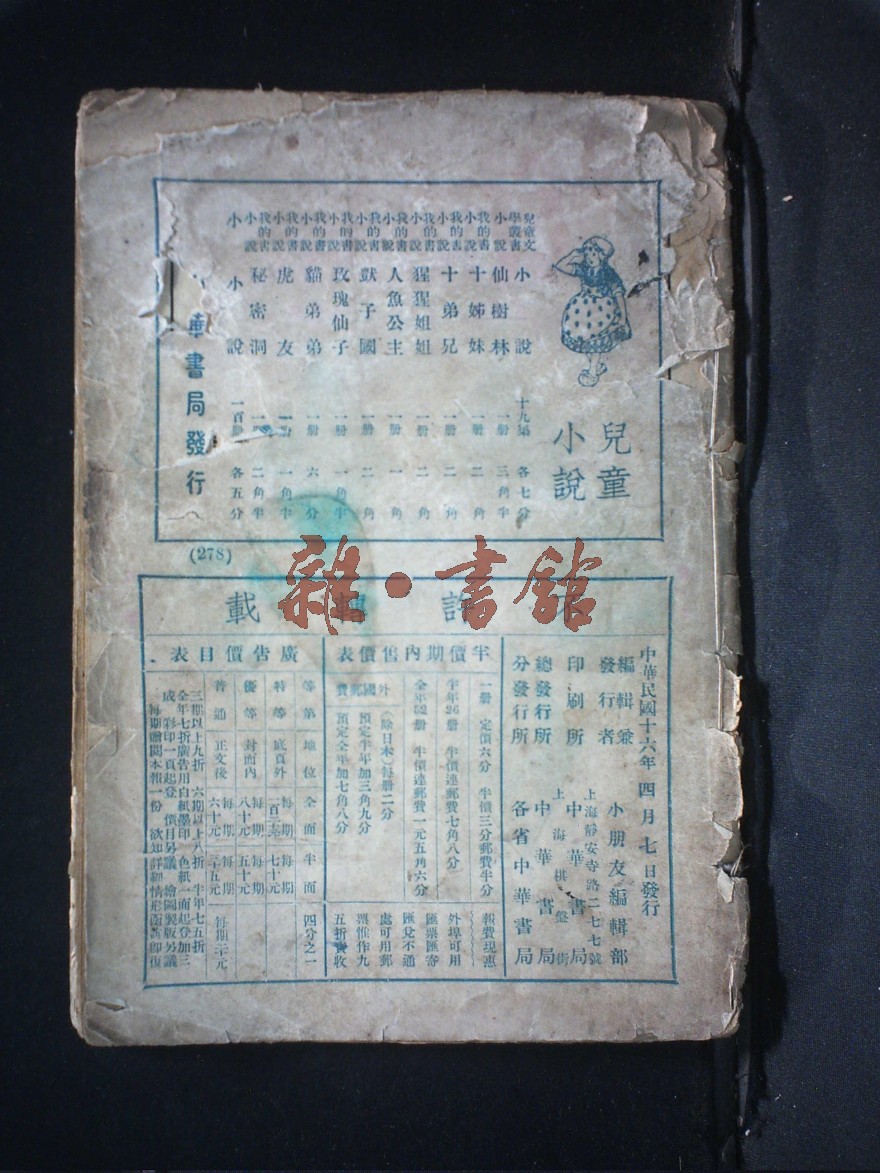 兒童
小說
兒童文學叢書 小說 十九集 各七分
小說 仙樹林 一冊 三角半
我的書小說 十姊妹 一冊 二角
我的書小說 十弟兄 一冊 二角
我的書小說 猩猩姐姐 一冊 二角
我的書小說 人魚公主 一冊 一角
我的書小說 獃子國 一冊 二角
我的書小說 玫瑰仙子 一冊 一角半
我的書小說 貓弟弟 一冊 六分
我的書小說 虎友 一冊 一角半
我的書小說 秘密洞 一冊 二角半
小 小說 一百冊 各五分
華書局發行
(278)
許轉載
雜·書館
中華民國十六年四月七日發行
編輯兼發行者 小朋友編輯部
上海靜安寺路二七七號
印刷所 中華書局
上海棋盤街
總發行所 中華書局
分發行所 各省中華書局
半價期內售價表
一冊 定價六分 半價三分郵費半分
半年26冊 半價連郵費七角八分
全年52冊 半價連郵費一元五角六分
外國郵費
(除日本)每冊二分
預定半年加三角九分
預定全年加七角八分
報費現惠
外埠可用
匯票匯寄
匯兌不通
處可用郵
票惟作九
五折實收
廣告價目表
等第 地位 全面 半面 四分之一
特等 底頁外 每期 每期七十元
優等 封面內 每期八十元 每期五十元
普通 正文後 每期六十元 每期三十五元 每期二十元
三期以上九折 六期以上八折 半年七五折
全年七折廣告用白紙墨印 色紙一面起登加三
成 彩印一頁起登 價目另議 繪圖製版另議
每期贈閱本報一份 欲知詳細情形函詢即復